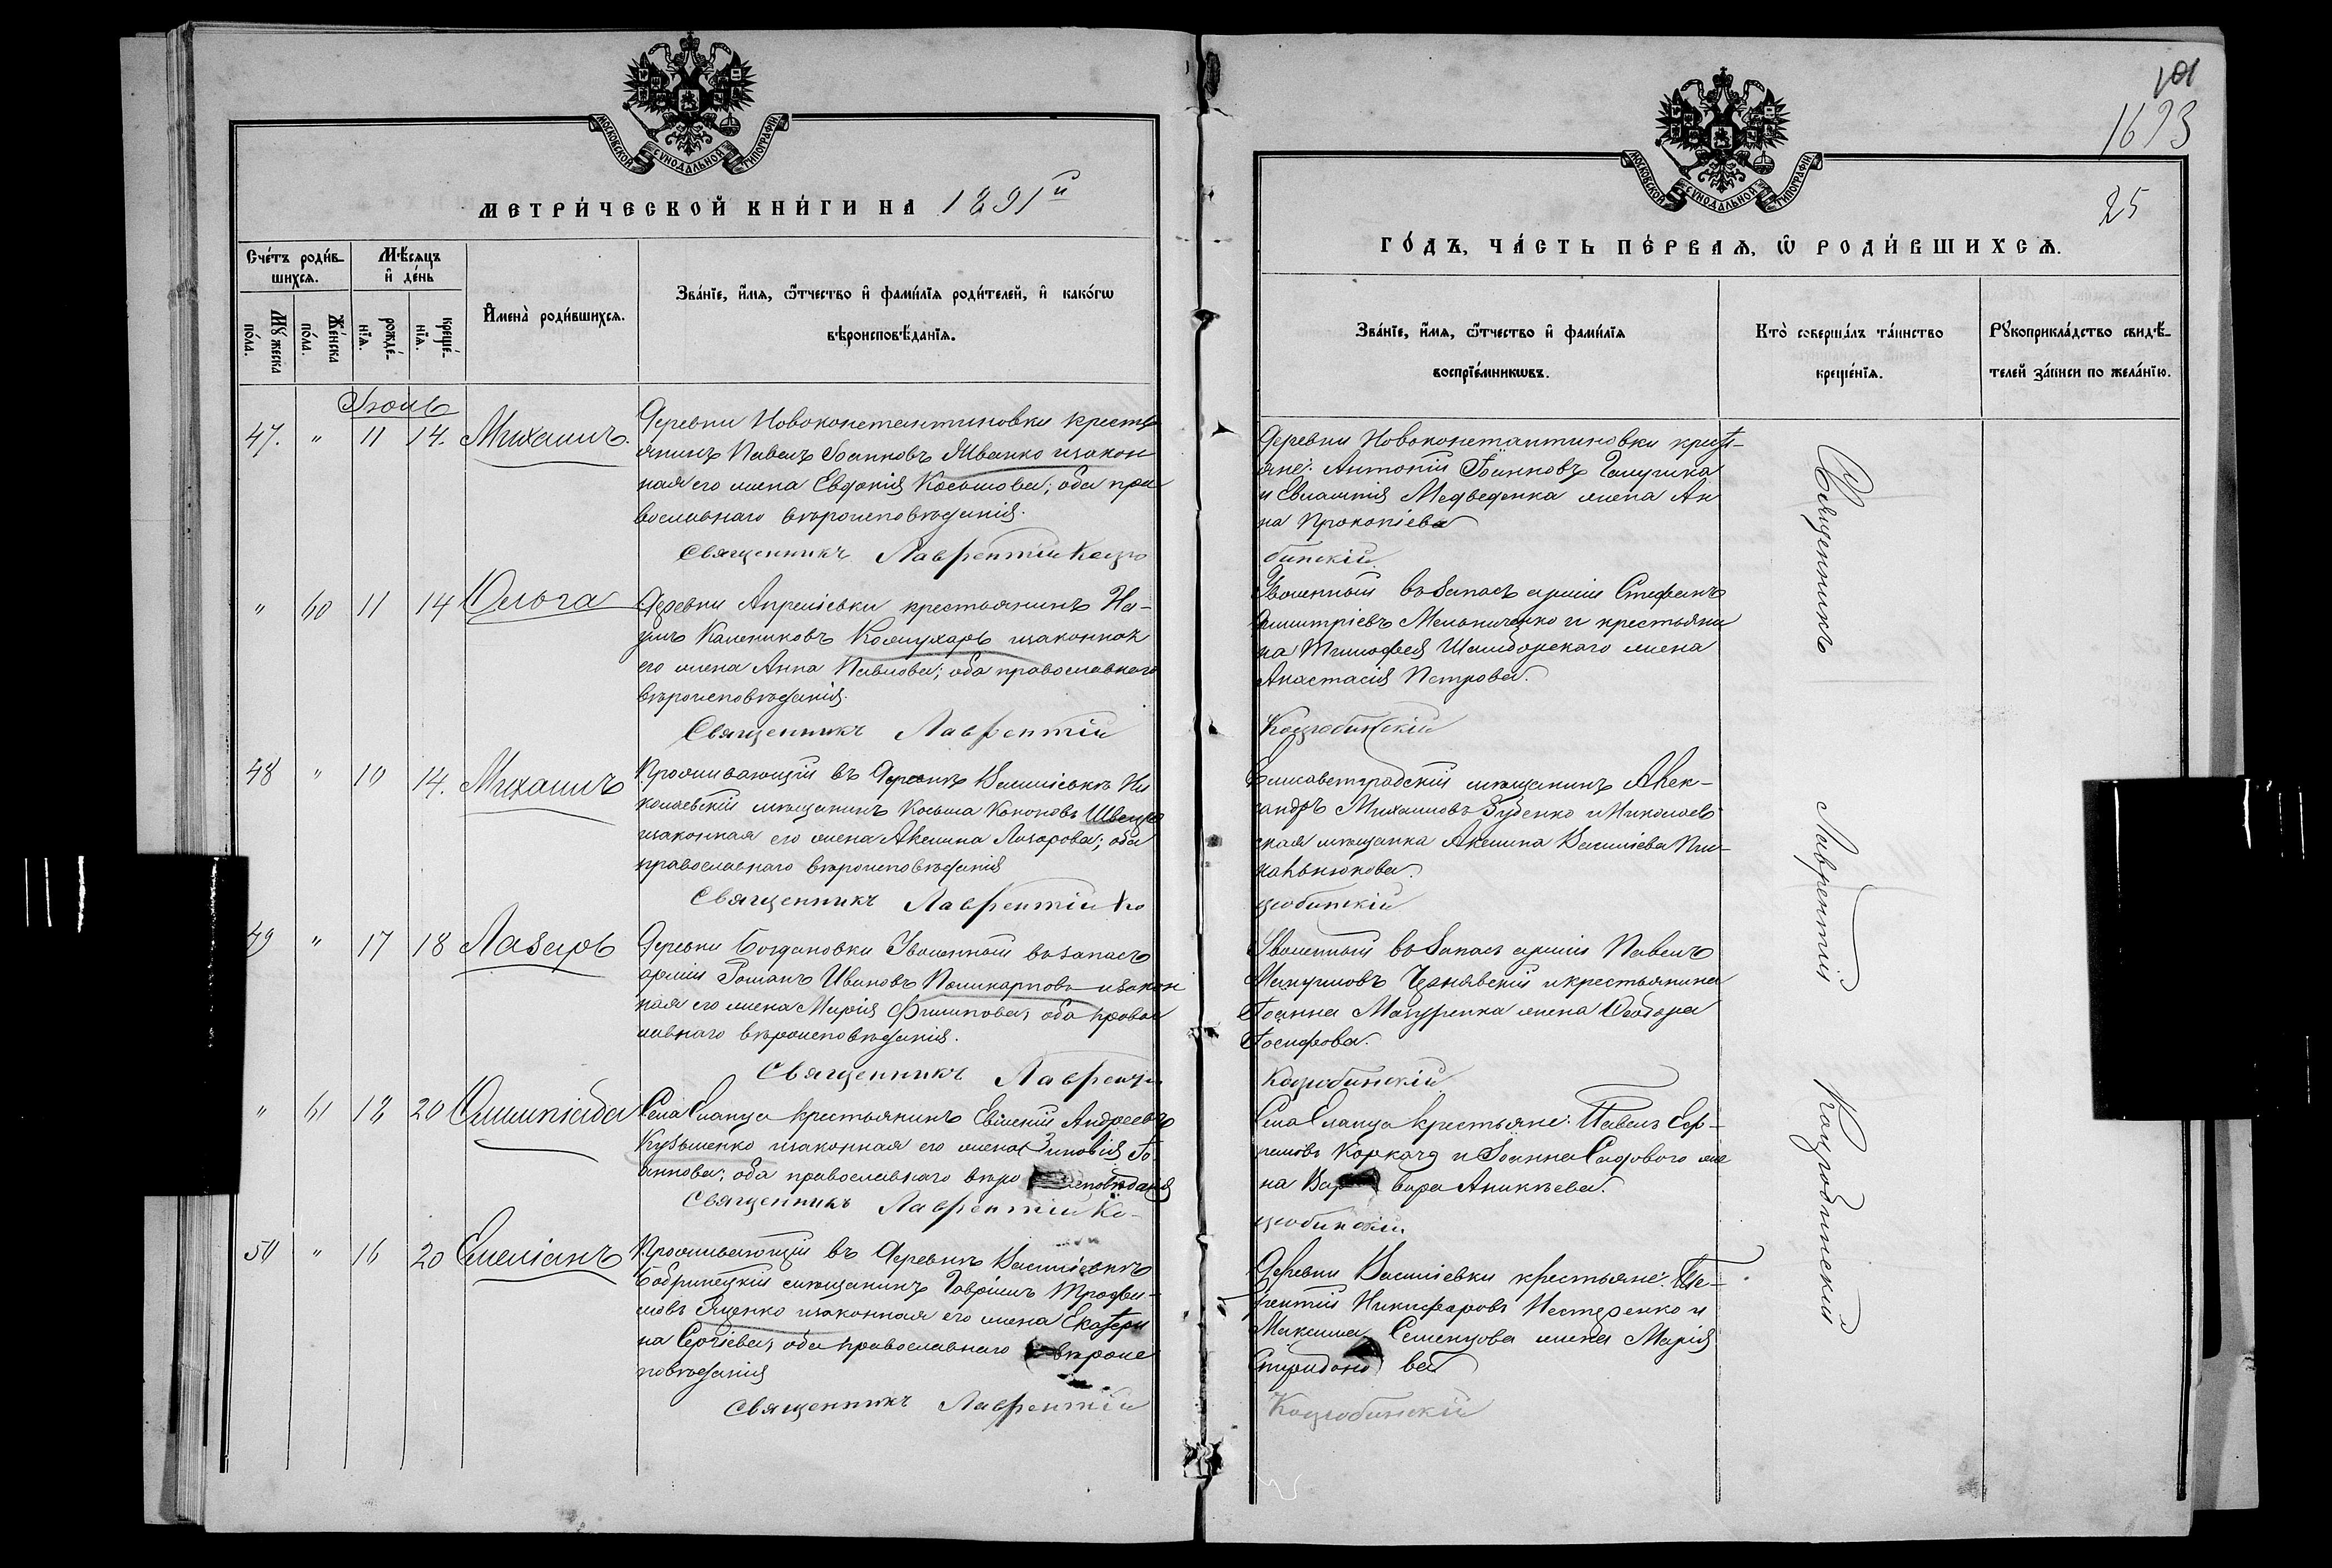 МОСКОВСКОЙ СѴНОДАЛЬНОЙ ТИПОГРАФІИ
МЕТРИ́ЧЕСКОЙ КНИ́ГИ НА 1891й
Сче́тъ роди́в-
шихся.
Мѣ́сяцъ
и҆ де́нь
Му́жеска по́ла.
Же́нска по́ла.
рожде́-
нїѧ.
креще́-
нїѧ.
И҆мена̀ роди́вшихся.
Зва́нїе, и҆́мя, ѻ҆́тчество и҆ фами́лїя роди́телей, и҆ како́гѡ
вѣроисповѣ́данїя.
Іюль
47. " 11 14. Михаилъ.
Деревни Новоконстантиновки кресть
янинъ Павелъ Іоанновъ Иванко изакон
ная его жена Евдокія Космова; оба пра
вославнаго вѣроисповѣданія.
Священникъ Лаврентій Коцю
" 60 11 14 Ольга
Деревни Апреліевки крестьянинъ На-
умъ Калениковъ Кожухарь изаконная
его жена Анна Павлова; оба православнаго
вѣроисповѣданія.
Священникъ Лаврентій
48 " 10 14. Михаилъ
Проживающій въ Деревнѣ Василіевкѣ Ни
колаевскій мѣщанинъ Косьма Кононовъ Швецъ
изаконная его жена Акелина Лазарова; оба
православнаго вѣроисповѣданія
Священникъ Лаврентій Ко
49 " 17 18 Лазарь
Деревни Богдановки Уволенный въ запасъ
арміи Романъ Ивановъ Поликарповъ изакон
ная его жена Марія Филипова; оба правос
лавнаго вѣроисповѣданія.
Священникъ Лаврентій
" 61 18 20 Олимпіада
Села Еланца крестьянинъ Евгеній Андреевъ
Кузьменко изаконная его жена Зиновія Іо
аннова; оба православнаго вѣро исповѣданія
Священникъ Лаврентій Ко-
50 " 16 20 Емеліанъ
Проживающій въ Деревнѣ Василіевкѣ
Бобринецкій мѣщанинъ Гавріилъ Трофи-
мовъ Яценко изаконная его жена Екатери
на Сергіева; оба православнаго вѣроис
повѣданія
Священникъ Лаврентій
101
1693
25
МОСКОВСКОЙ СѴНОДАЛЬНОЙ ТИПОГРАФІИ
ГО́ДЪ, ЧА́СТЬ ПЕ́РВАЯ, Ѽ РОДИ́ВШИХСЯ.
Зва́нїе, и҆́мя, ѻ҆́тчество и҆ фами́лїя
воспрїе́мникѡвъ.
Кто̀ соверша́лъ та́инство
креще́нїя.
Рꙋкоприкла́дство свидѣ́-
телей за́писи по жела́нїю.
Деревни Новоконстантиновки крест-
яне: Антоній Іоанновъ Галушка
и Евлампія Медведенка жена Ан
на Прокопіева
бинскій.
Уволенный въ запасъ арміи Стефанъ
Димитріевъ Мельниченко и крестьяни
на Тимофея Шамборскаго жена
Анастасія Петрова.
Коцюбинскій
Елисаветградскій мѣщанинъ Алек-
сандръ Михаиловъ Зубенко и Николаев
ская мѣщанка Акелина Василіева
цюбинскій
Уволенный въ запасъ арміи Павелъ
Чернявскій и крестьянина
Іоанна Мазуренка жена Ѳеодора
Іосифова.
Коцюбинскій
Села Еланца крестьяне: Павелъ
Коркачъ и Іоанна Садового же
на Вар вара Аникѣева.
цюбинскій.
Деревни Василіевки крестьяне: Те-
рентій Никифоровъ Нестеренко и
Максима Семенцова жена Марія
Спиридоно ва
Коцюбинскій
Священникъ
Лаврентій
Коцюбинскій